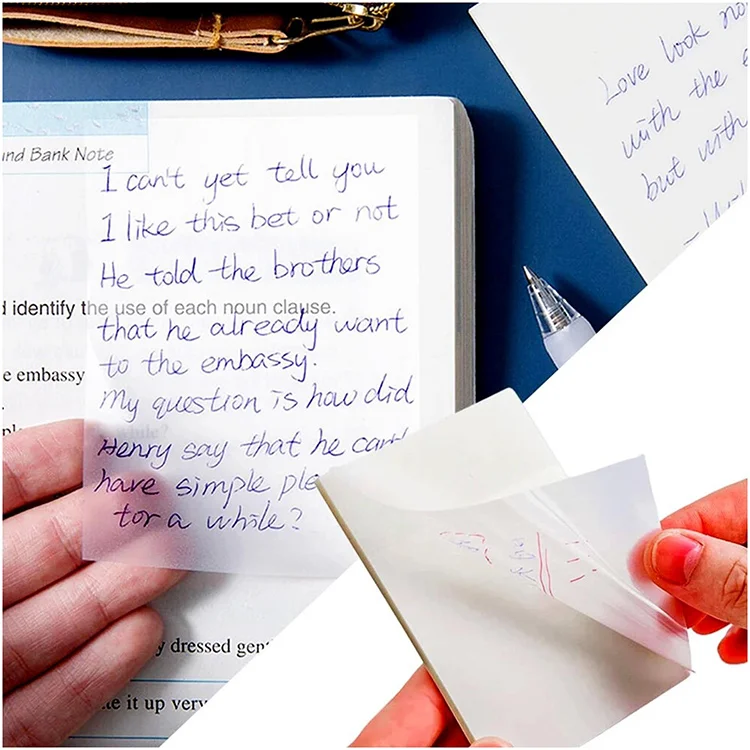 und Bank Note
I can't yet tell you
I like this bet or not
He told the brothers
d identify the use of each noun clause.
that he already want
to the embassy.
e embassy
My question is how did
Henry say that he can't
have simple ple
for a while?
y dressed gen
te it up very
Love look no
with the e
but with